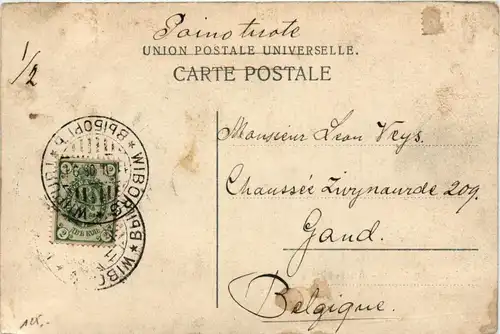 Painotuote
UNION POSTALE UNIVERSELLE.
CARTE POSTALE
1/2
Monsieur Jean Veys.
Chaussée Zwynaarde 209.
Gand.
Belgique.
* WIBORG * ВЫБОРГЪ
125,-